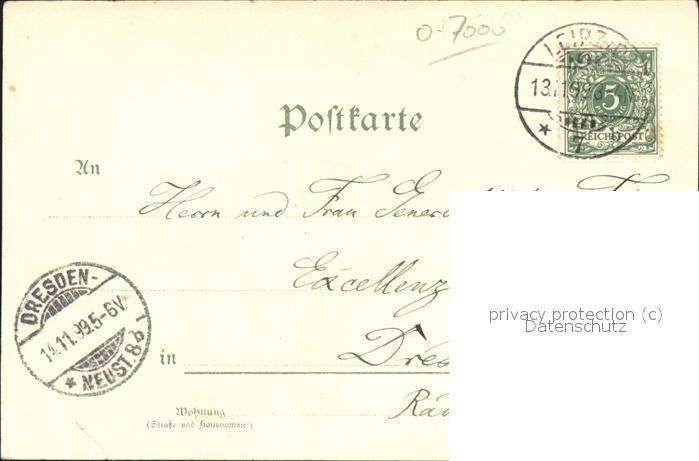 0-7000
LEIPZIG
13.11.99
7
5
REICHSPOST
Postkarte
An
Herrn und Frau
Excellenz
DRESDEN-
14.11.99.5-6V.
* NEUST. 8
privacy protection (c)
Datenschutz
in Dres
Wohnung
(Straße und Hausnummer)